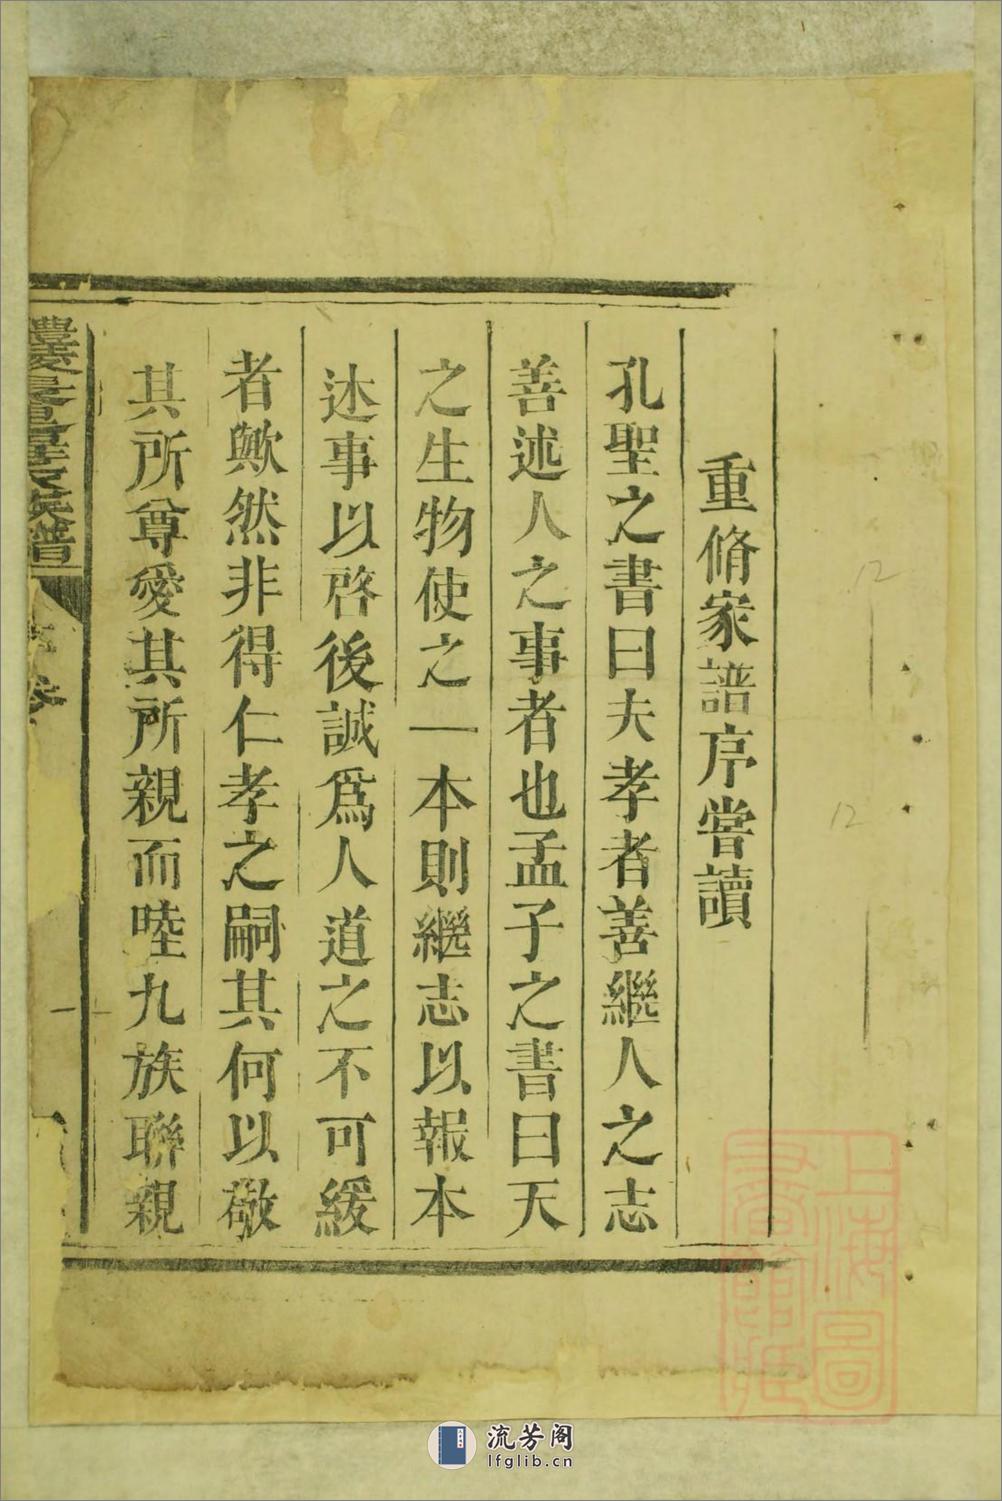 重脩家譜序嘗讀
孔聖之書曰夫孝者善繼人之志
善述人之事者也孟子之書曰天
之生物使之一本則繼志以報本
述事以啓後誠爲人道之不可緩
者歟然非得仁孝之嗣其何以敬
其所尊愛其所親而睦九族聯親
族譜
卷
上海圖書館藏
12
12
流芳阁
lfglib.cn